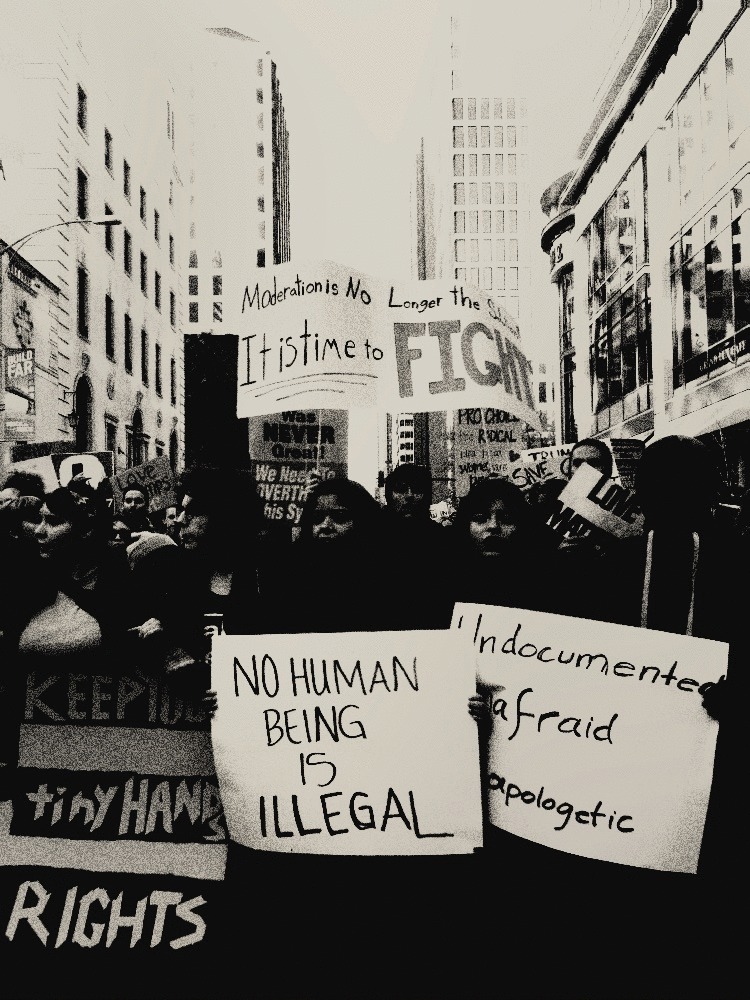 Moderation is No Longer the
It is time to FIGHT
Was
NEVER
Great!
We Need To
OVERTH
his Sy
PRO CHOICE
TRUMP
SAVE
LOVE
LOVE
NO HUMAN
BEING
IS
ILLEGAL
Undocumented
afraid
apologetic
KEEP YOUR
tiny HANDS
RIGHTS